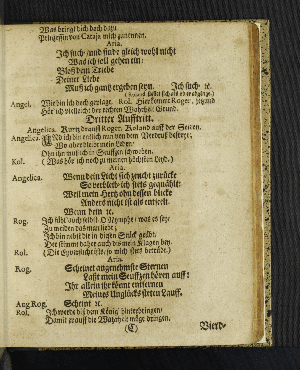 Was bringt dich doch dazu
Prinzessin von Cataja mich zu nennen.
Aria.
Ich such / und finde gleich wohl nicht
Was ich soll gehen ein:
Bloß dem Triebe
Deiner Liebe
Muß ich gantz ergeben seyn. Ich such ꝛc.
Angel. Wie bin ich doch geplagt. Rol. Hier kommet Roger, jtzund
Hör ich vielleicht der rechten Warheit Grund.
Dritter Aufftritt.
Angelica. Kurtz drauff Roger. Roland auff der Seiten.
Angelica. ich bin endlich nun von dem Verdruß befreyet,
Wo aber bleibt mein Lieder,
Den ihr muß ich in Seufftzen schweben.
Rol. (Was hör ich noch zu meinen höchsten Leyd.)
Aria.
Angelica. Wenn dein Licht sich zeucht zurücke
So verbleib ich stets gequählt:
Weil mein Hertz ohn dessen blicke
Anders nicht ist als entseelt.
Wenn dein ꝛc.
Rog. Ich fühl auch selbst O Nymphe / was es sey:
Zu meiden das man liebe;
Ich bin
Der stimmt daher auch diß mein Klagen bey.
Rol. (Die Eyversucht ists, so mich stets betrübt.)
Aria.
Rog. Scheinet angenehmste Sternen
Last mein Seufftzen hören auff:
Ihr allein ihr könnt entfernen
Meines Unglücks steten Lauff.
Ang Rog. Scheint ꝛc.
Rol. Ich werde diß dem König hinterbringen /
Damit drauff die Wahrheit möge dringen.
(C) Vierd-